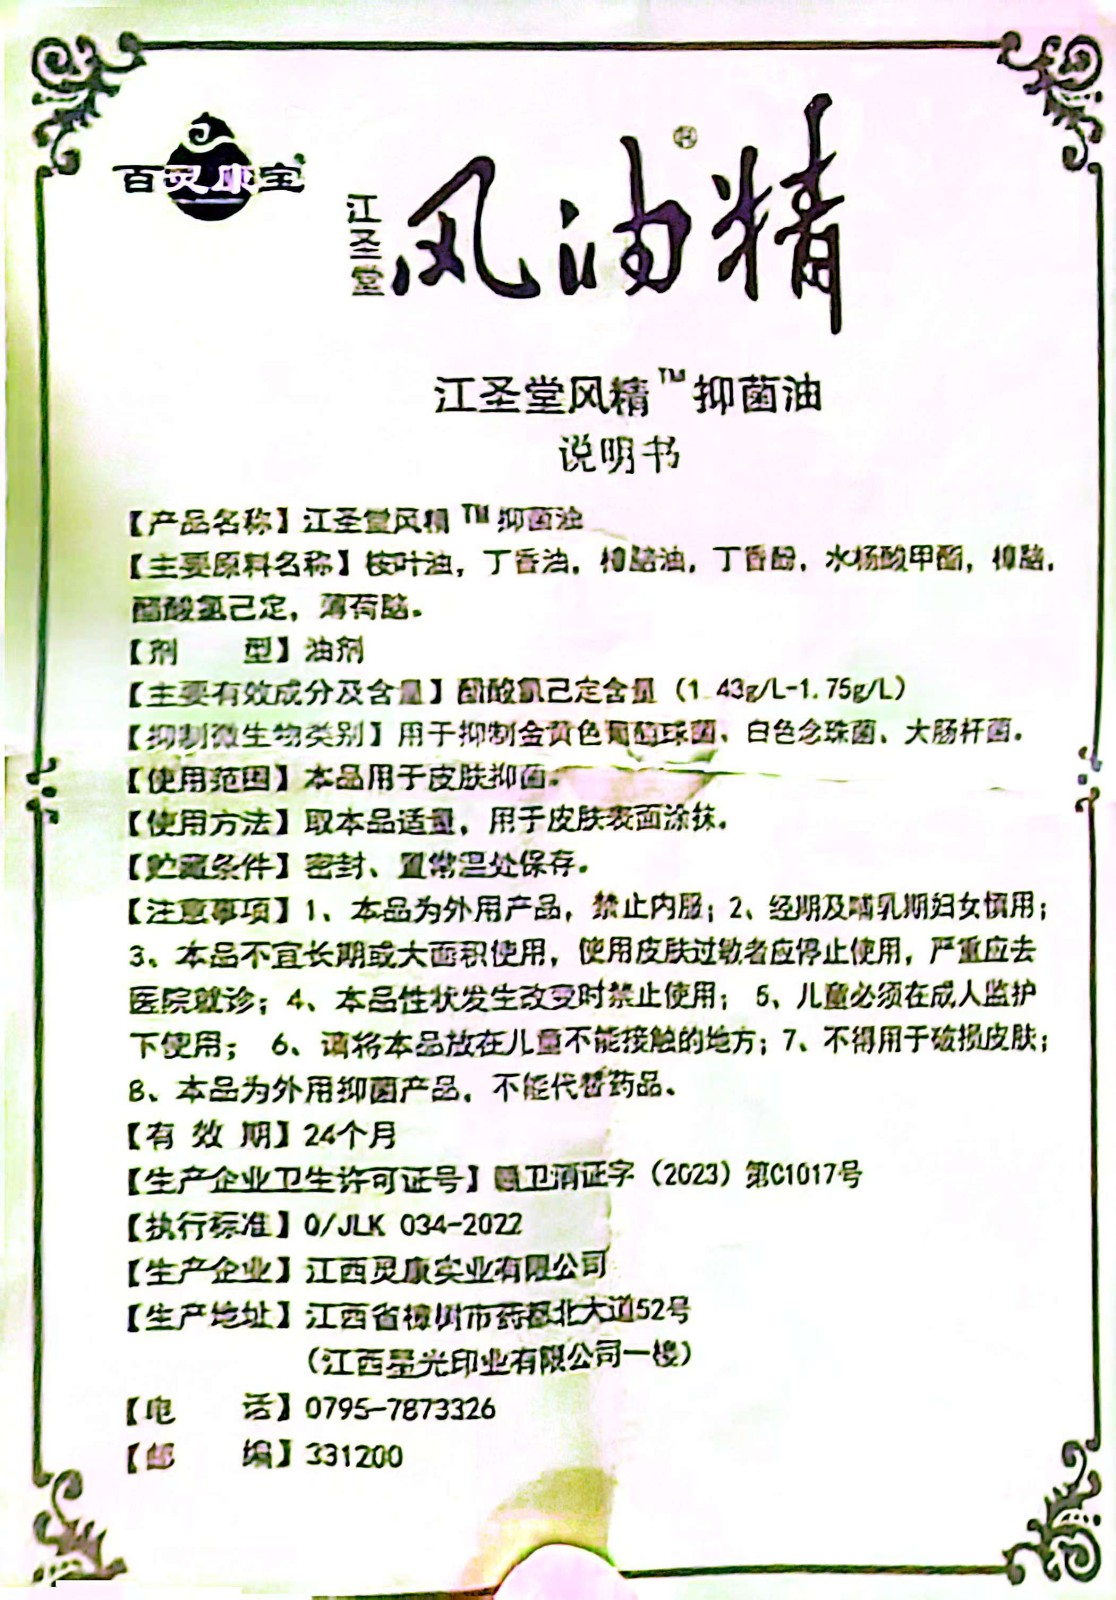 百灵康宝
江圣堂
风油精®
江圣堂风精™抑菌油
说明书
【产品名称】江圣堂风精™抑菌油
【主要原料名称】桉叶油，丁香油，樟脑油，丁香酚，水杨酸甲酯，樟脑，
醋酸氯己定，薄荷脑。
【剂 型】油剂
【主要有效成分及含量】醋酸氯己定含量（1.43g/L-1.75g/L）
【抑制微生物类别】用于抑制金黄色葡萄球菌、白色念珠菌、大肠杆菌。
【使用范围】本品用于皮肤抑菌。
【使用方法】取本品适量，用于皮肤表面涂抹。
【贮藏条件】密封、置常温处保存。
【注意事项】1、本品为外用产品，禁止内服；2、经期及哺乳期妇女慎用；
3、本品不宜长期或大面积使用，使用皮肤过敏者应停止使用，严重应去
医院就诊；4、本品性状发生改变时禁止使用；5、儿童必须在成人监护
下使用； 6、请将本品放在儿童不能接触的地方；7、不得用于破损皮肤；
8、本品为外用抑菌产品，不能代替药品。
【有 效 期】24个月
【生产企业卫生许可证号】赣卫消证字（2023）第C1017号
【执行标准】Q/JLK 034-2022
【生产企业】江西灵康实业有限公司
【生产地址】江西省樟树市药都北大道52号
（江西星光印业有限公司一楼）
【电 话】0795-7873326
【邮 编】331200